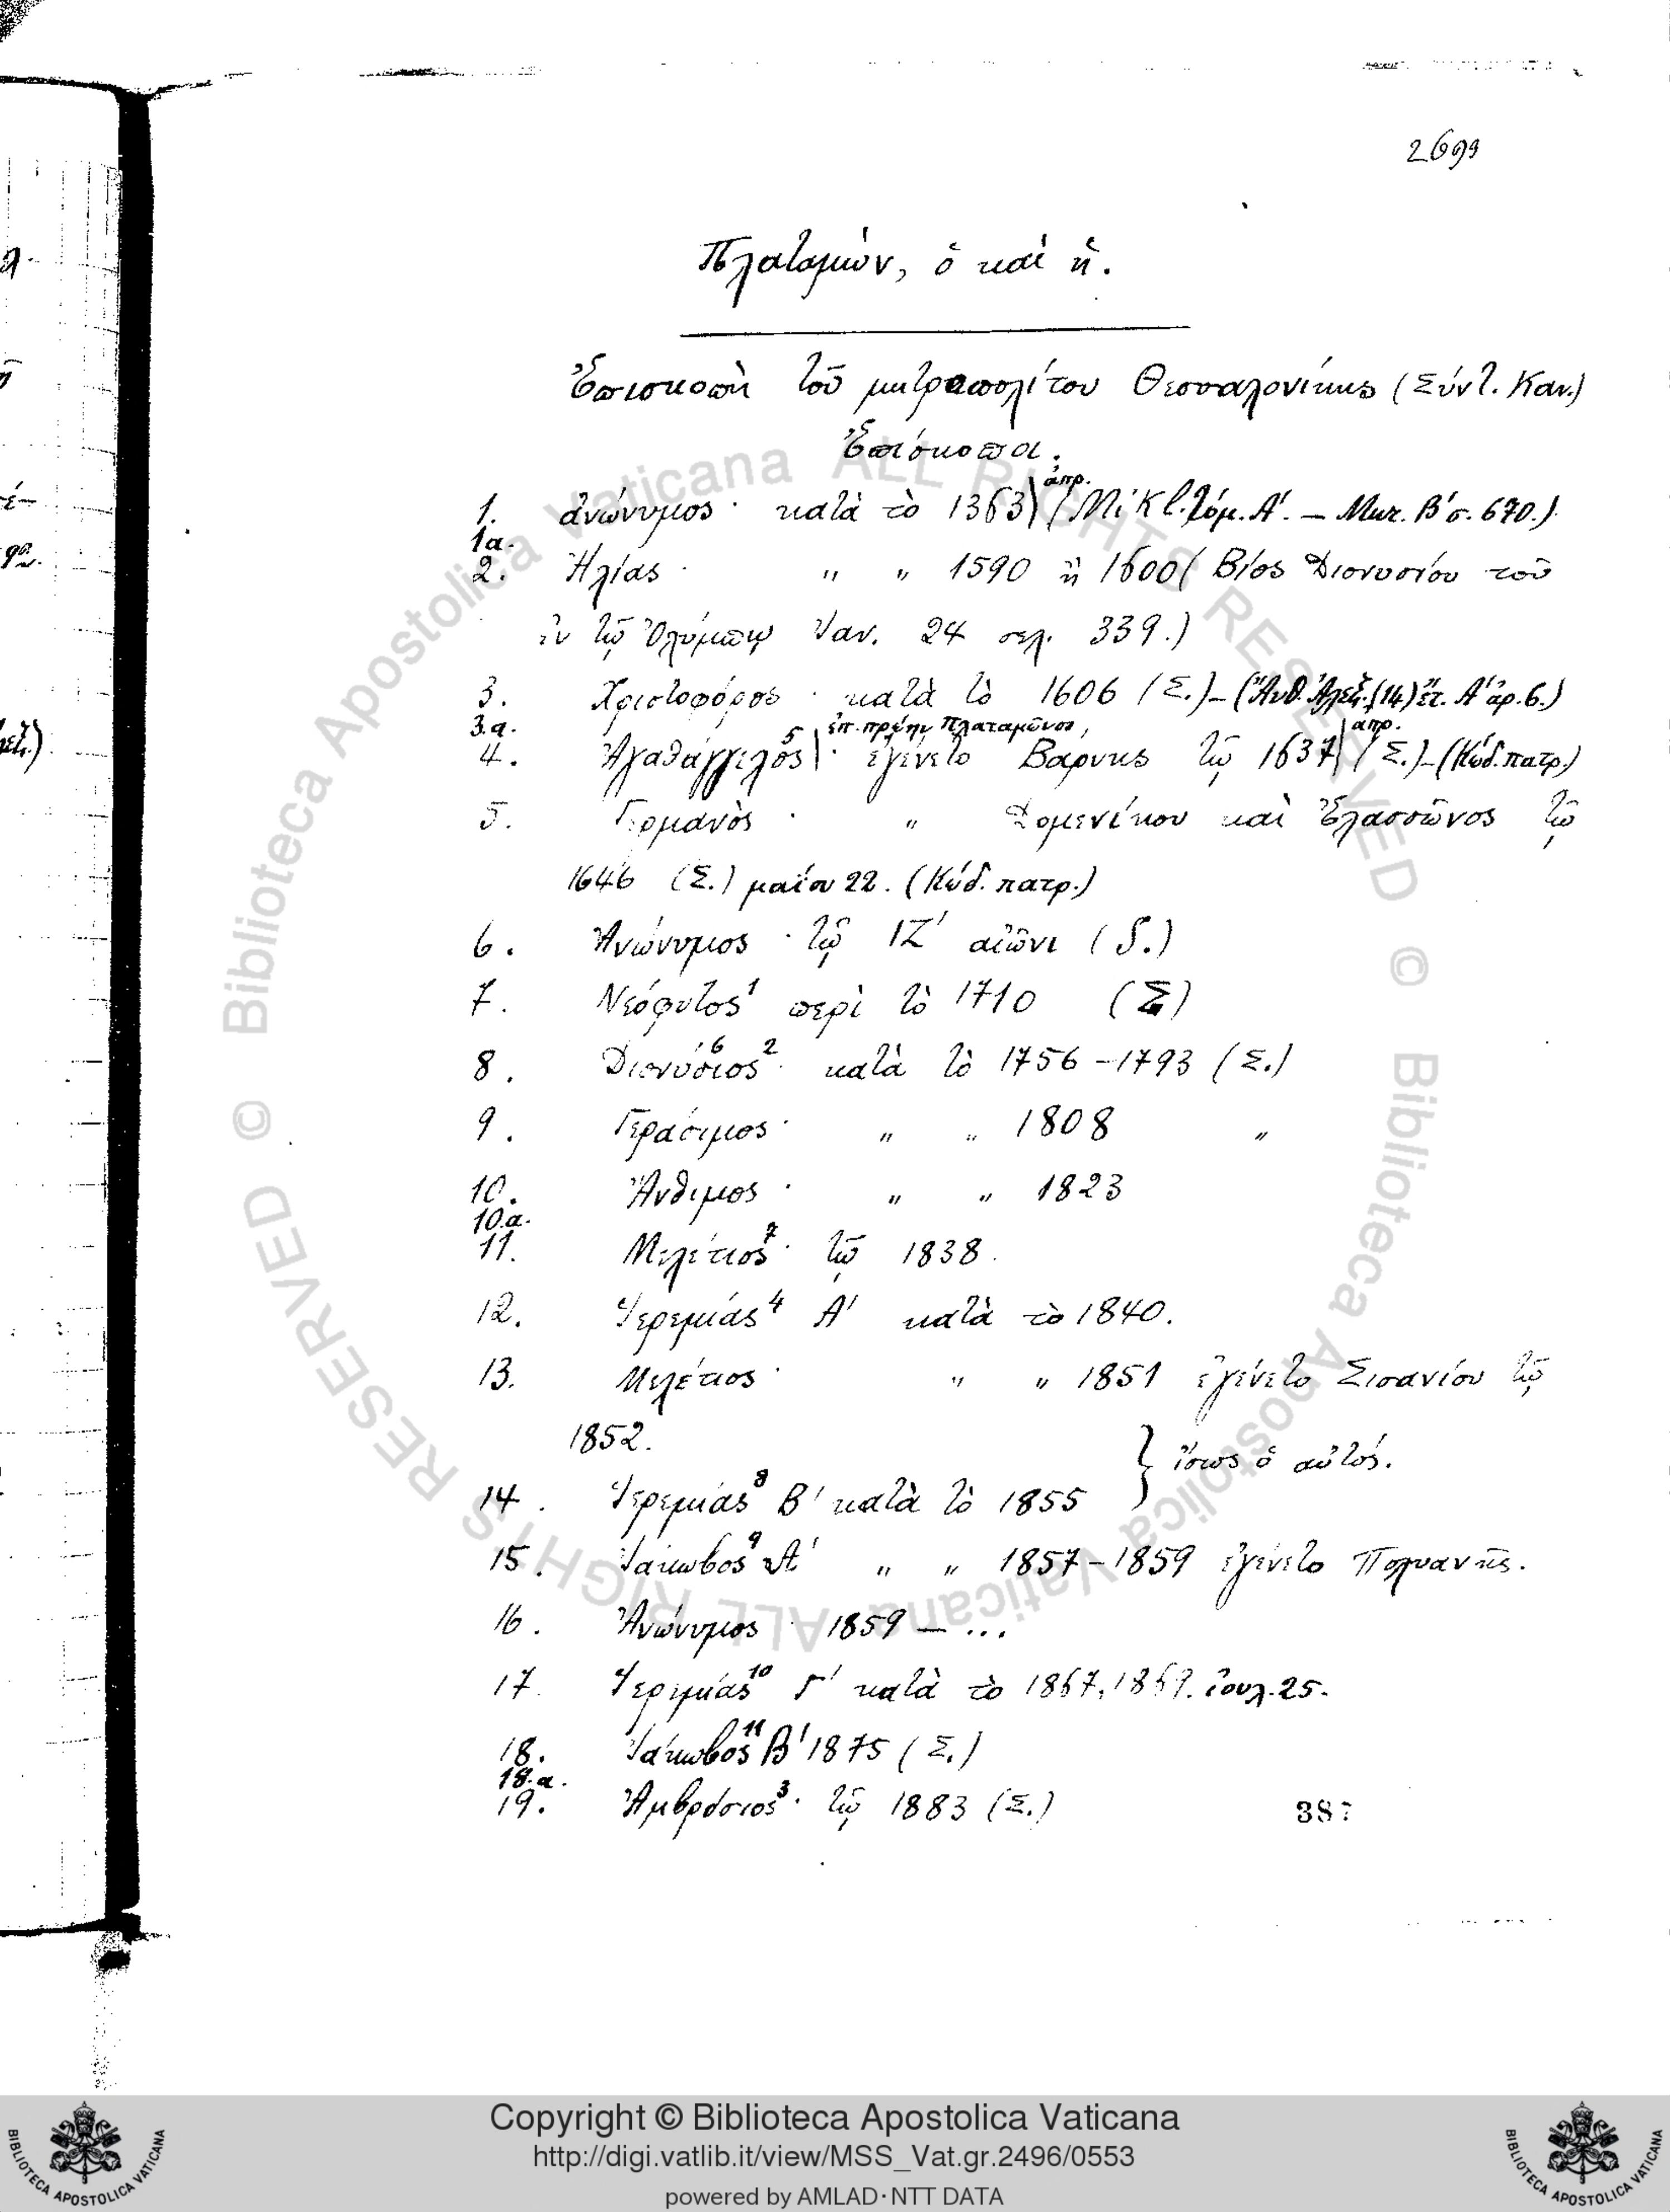 2699
Πλαταμών, ὁ καὶ ἡ.
Ἐπισκοπὴ τοῦ μητροπολίτου Θεσσαλονίκης (Σύντ. Καν.)
Ἐπίσκοποι.
1. ἀνώνυμος · κατὰ τὸ 1363 ἀπρ. (Mikl. τόμ. Α΄. – Μυζ. Β΄ σ. 670.)
1α.
2. Ἠλίας · " " 1590 ἢ 1600 ( Βίος Διονυσίου τοῦ
ἐν τῷ Ὀλύμπῳ Ἰαν. 24 σελ. 339.)
3. Χριστοφόρος · κατὰ τὸ 1606 (Σ.) – (Ἀνθ. Ἀλεξ. (14) ἔτ. Α΄ ἀρ. 6.)
3.α.
ἐπ. πρώην Πλαταμῶνος,
4. Ἀγαθάγγελος⁵ · ἐγένετο Βάρνης τῷ 1637 ἀπρ. (Σ.) – (Κώδ. πατρ.)
5. Γερμανὸς · " Δομενίκου καὶ Ἐλασσῶνος τῷ
1646 (Σ.) μαΐου 22. (Κώδ. πατρ.)
6. Ἀνώνυμος · τῷ ΙΖ΄ αἰῶνι (S.)
7. Νεόφυτος¹ περὶ τὸ 1710 (Σ)
8. Διονύσιος⁶ ² · κατὰ τὸ 1756 – 1793 (Σ.)
9. Γεράσιμος · " " 1808 "
10. Ἄνθιμος · " " 1823
10.α.
11. Μελέτιος⁷ · τῷ 1838.
12. Ἱερεμίας⁴ Α΄ κατὰ τὸ 1840.
13. Μελέτιος · " " 1851 ἐγένετο Σισανίου τῷ
1852.
} ἴσως ὁ αὐτός.
14. Ἱερεμίας⁸ Β΄ κατὰ τὸ 1855
15. Ἰάκωβος⁹ Α΄ " " 1857 – 1859 ἐγένετο Πολυανῆς.
16. Ἀνώνυμος · 1859 – ...
17. Ἱερεμίας¹⁰ Γ΄ κατὰ τὸ 1867, 1869. ἰουλ. 25.
18. Ἰάκωβος¹¹ Β΄ 1875 (Σ.)
18.α.
19. Ἀμβρόσιος³ · τῷ 1883 (Σ.)
387
Copyright © Biblioteca Apostolica Vaticana
http://digi.vatlib.it/view/MSS_Vat.gr.2496/0553
powered by AMLAD·NTT DATA
BIBLIOTECA APOSTOLICA VATICANA
BIBLIOTECA APOSTOLICA VATICANA
© Biblioteca Apostolica Vaticana ALL RIGHTS RESERVED © Biblioteca Apostolica Vaticana ALL RIGHTS RESERVED